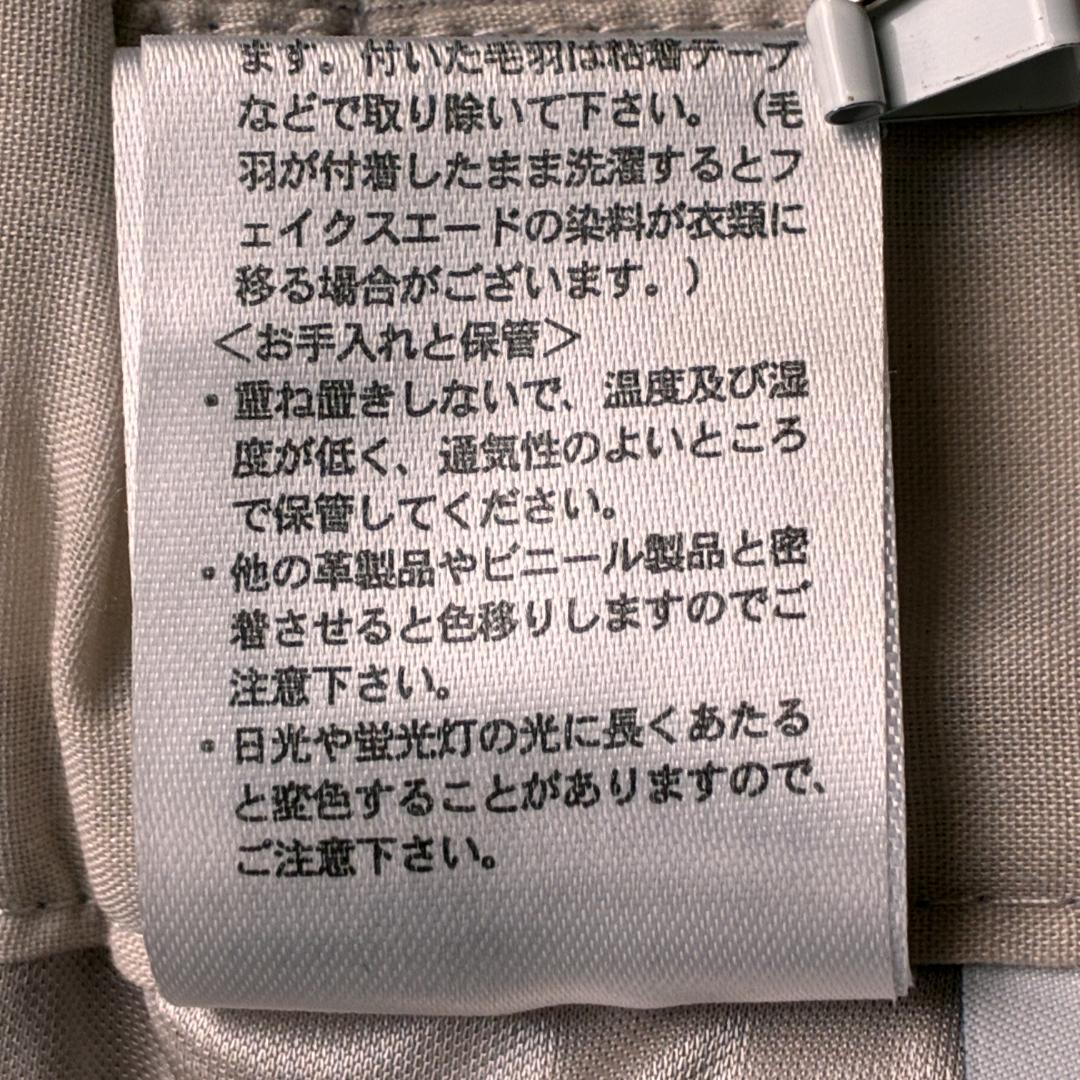 ます。付いた毛羽は粘着テープ
などで取り除いて下さい。（毛
羽が付着したまま洗濯するとフ
ェイクスエードの染料が衣類に
移る場合がございます。）
＜お手入れと保管＞
・重ね置きしないで、温度及び湿
度が低く、通気性のよいところ
で保管してください。
・他の革製品やビニール製品と密
着させると色移りしますのでご
注意下さい。
・日光や蛍光灯の光に長くあたる
と変色することがありますので、
ご注意下さい。